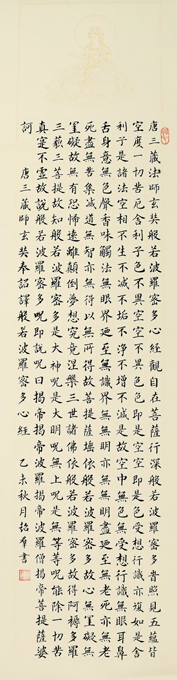 唐三藏法師玄奘般若波羅蜜多心經觀自在菩薩行深般若波羅蜜多時照見五蘊皆
空度一切苦厄舍利子色不異空空不異色色即是空空即是色受想行識亦復如是舍
利子是諸法空相不生不滅不垢不淨不增不減是故空中無色無受想行識無眼耳鼻
舌身意無色聲香味觸法無眼界乃至無意識界無無明亦無無明盡乃至無老死亦無老
死盡無苦集滅道無智亦無得以無所得故菩提薩埵依般若波羅蜜多故心無罣礙無
罣礙故無有恐怖遠離顛倒夢想究竟涅槃三世諸佛依般若波羅蜜多故得阿耨多羅
三藐三菩提故知般若波羅蜜多是大神呪是大明呪是無上呪是無等等呪能除一切苦
真實不虛故說般若波羅蜜多呪即說呪曰揭帝揭帝波羅揭帝波羅僧揭帝菩提薩婆
訶 唐三藏師玄奘奉詔譯般若波羅蜜多心經 乙未秋月 書